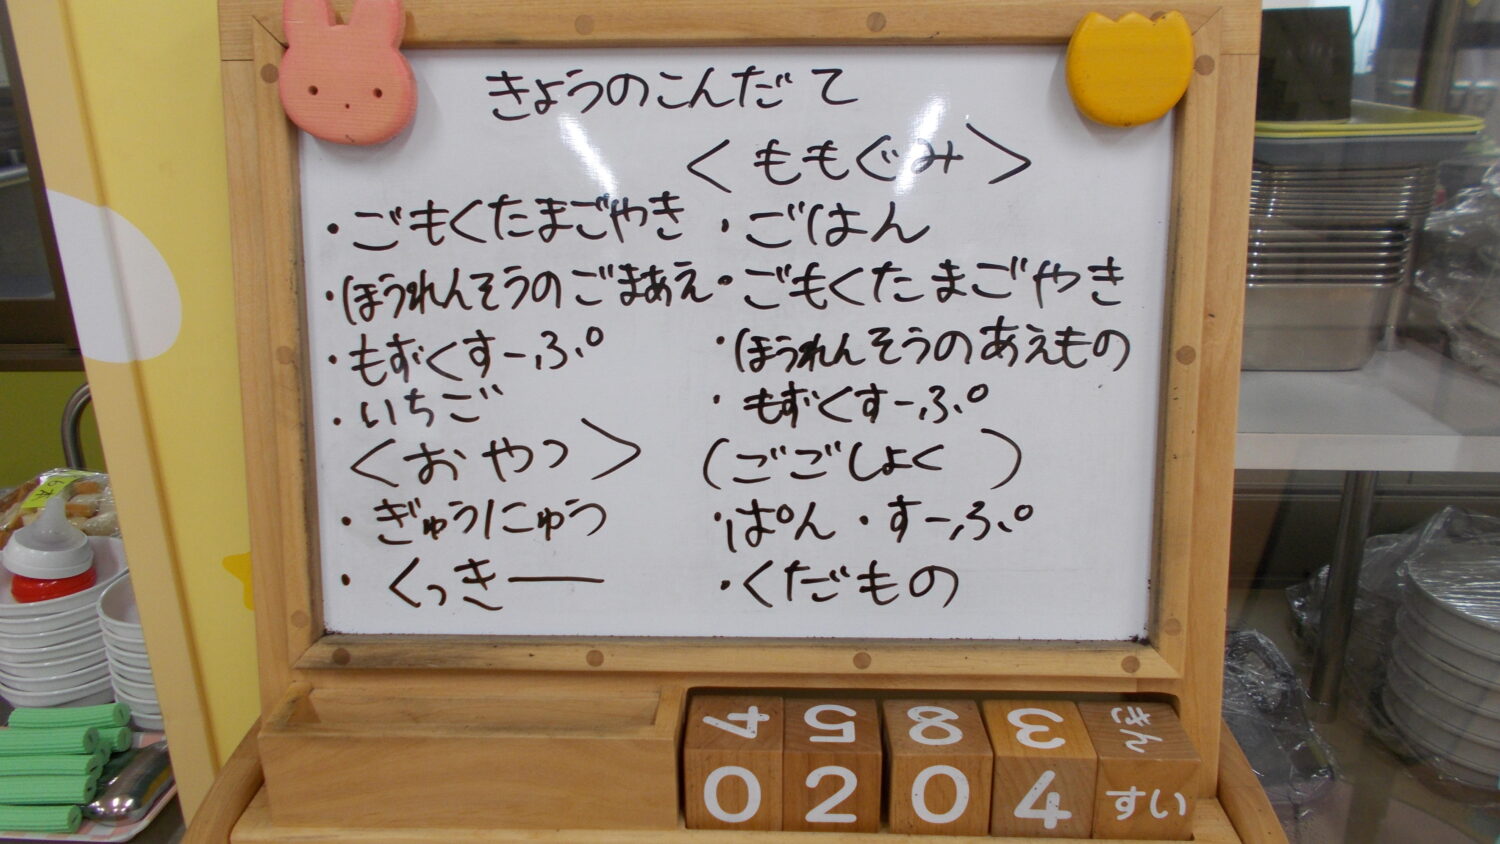 きょうのこんだて
・ごもくたまごやき
・ほうれんそうのごまあえ
・もずくすーぷ
・いちご
<おやつ>
・ぎゅうにゅう
・くっきー
<ももぐみ>
・ごはん
・ごもくたまごやき
・ほうれんそうのあえもの
・もずくすーぷ
(ごごしょく)
・ぱん・すーぷ
・くだもの
4 5 8 3 きん
0 2 0 4 すい